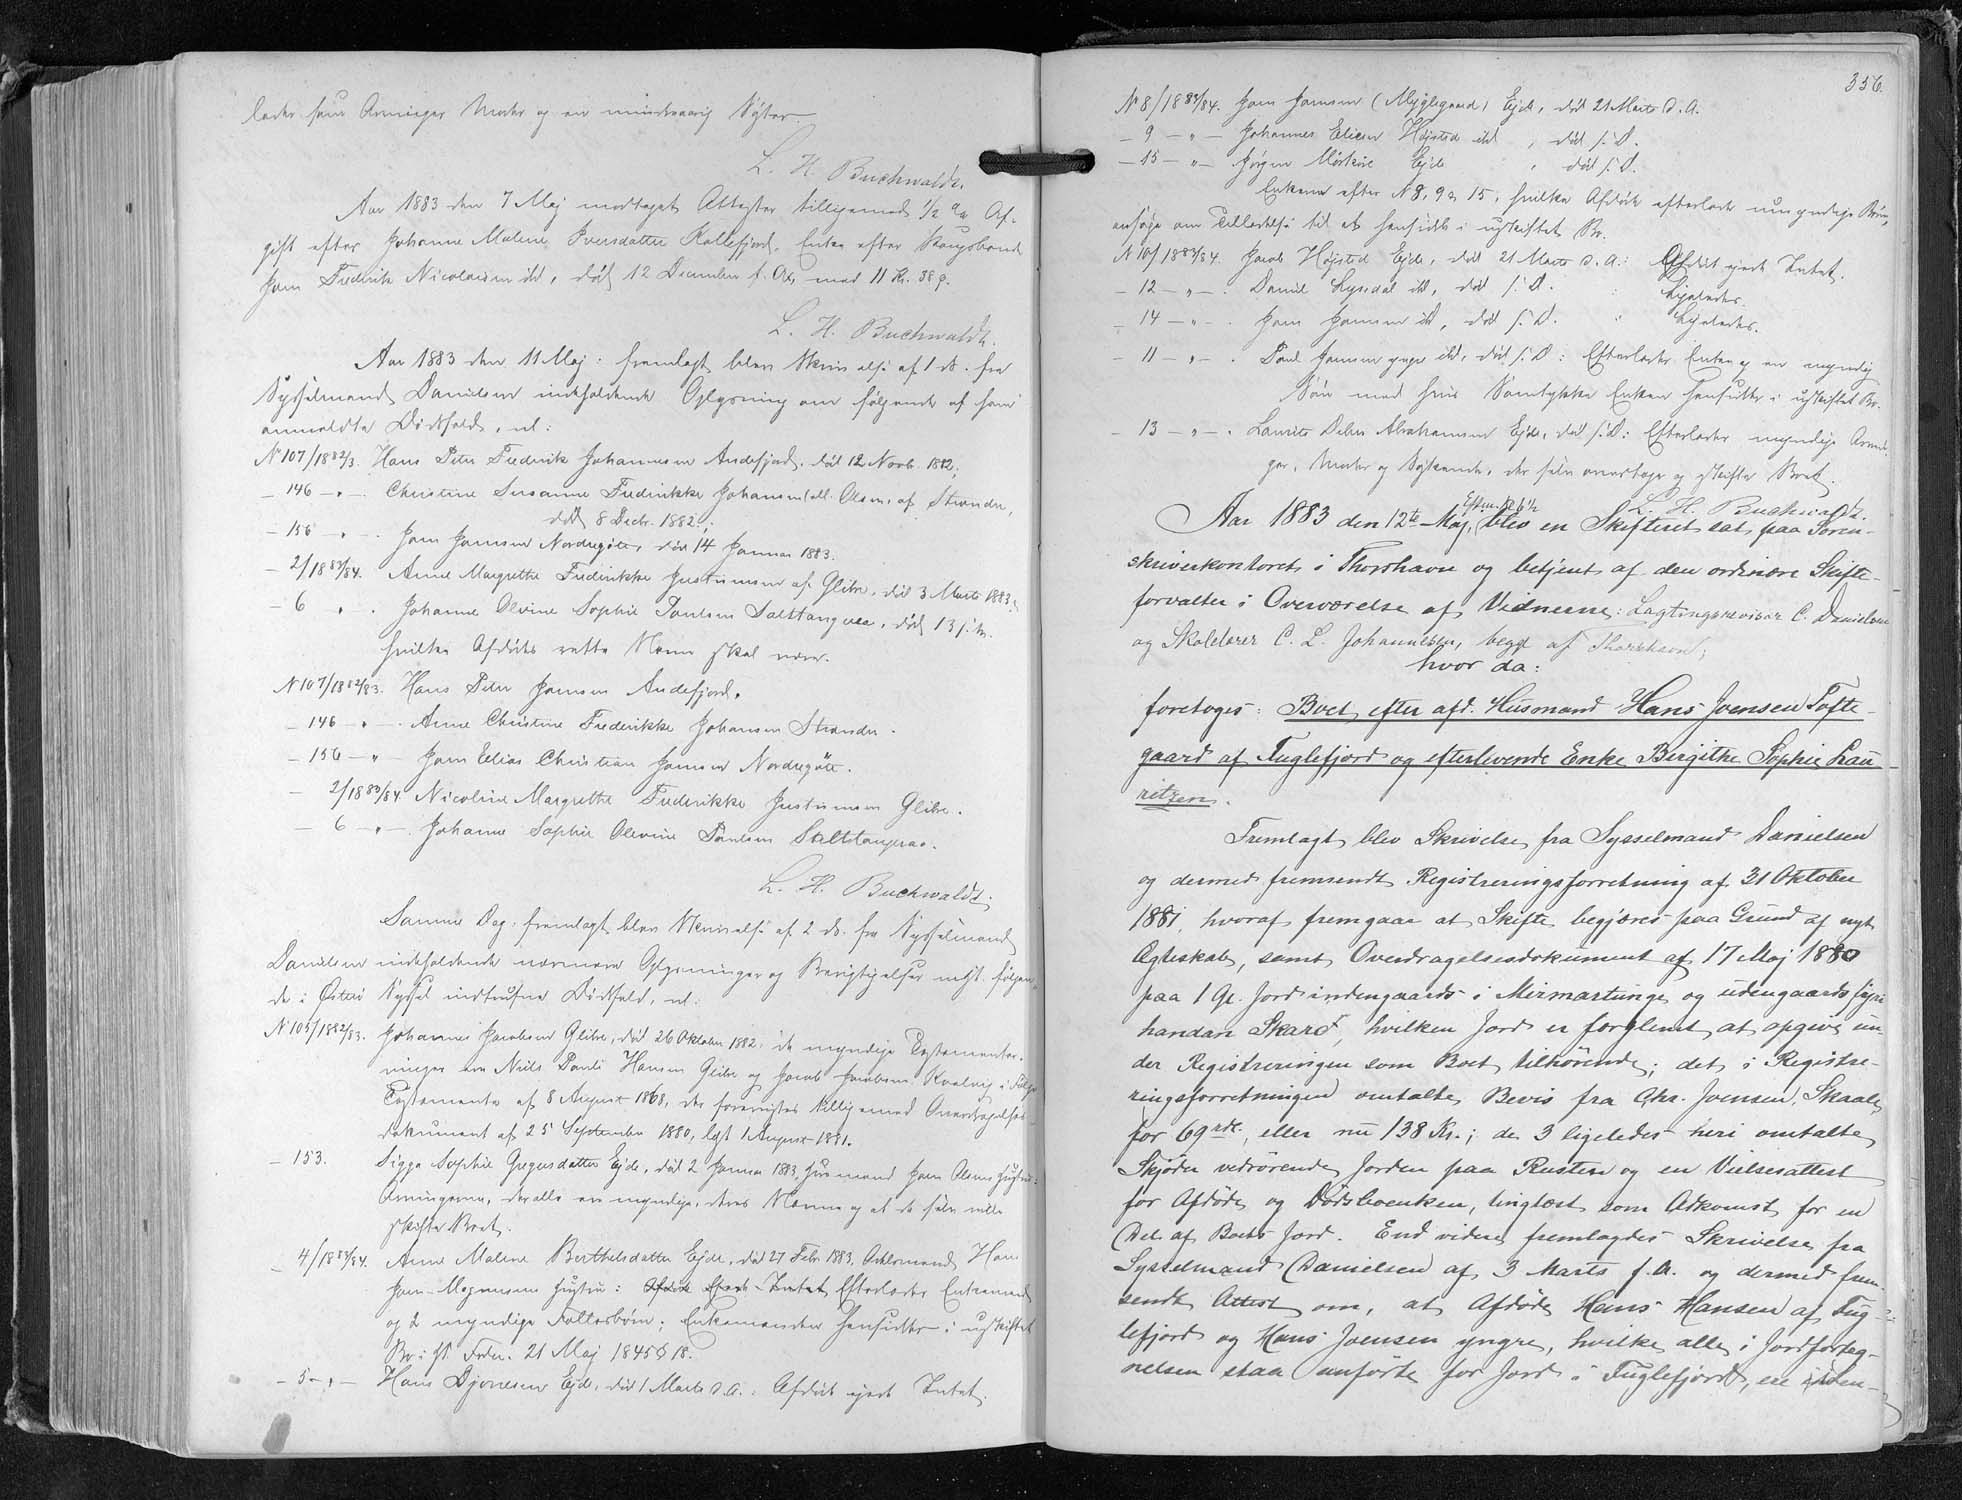 lader som Arvinger Moder og en mindreaarig Søster.
L. H. Buchwaldt.
Aar 1883 den 7 Maj modtaget Attester tilligemed ½ % Af-
gift efter Johanne Malene Iversdatter Kollefjord, Enke efter Kongsbonde
Joen Frederik Nicolaisen ibd, død 12 December f. A., med 11 Kr. 38 Ø.
L. H. Buchwaldt.
Aar 1883 den 11 Maj: fremlagt blev Skrivelse af 1 ds. fra
Sysselmand Danielsen indeholdende Oplysning om følgende af ham
anmeldte Dødsfald, nl:
N 107/1882/3. Hans Peter Frederik Johannesen Andefjord, død 12 Novb. 1882;
- 146 - " - Christine Susanne Frederikke Johansen (ell. Olsen) af Strender,
død 8 Decbr. 1882;
- 156 " - Joen Joensen Nordregøte, død 14 Januar 1883.
- 2/1883/84. Anne Margrethe Frederikke Justinussen af Glibre, død 3 Marts 1883;
- 6 " - Johanne Olevine Sophie Poulsen Saltangeraa, død 13 s. M.
hvilke Afdødes rette Navne skal være.
N 107/1882/83. Hans Peter Joensen Andefjord.
- 146 - " - Anne Christine Frederikke Johansen Strender.
- 156 - " - Joen Elias Christian Joensen Nordregøte.
- 2/1883/84 Nicoline Margrethe Frederikke Justinussen Glibre.
- 6 - " - Johanne Sophie Olevine Poulsen Saltstangeraa.
L. H. Buchwaldt.
Samme Dag fremlagt blev Skrivelse af 2 ds. fra Sysselmand
Danielsen indeholdende nærmere Oplysninger og Berigtigelser mht. følgen-
de i Østerø Syssel indtrufne Dødsfald, nl:
N 105/1882/83. Johannes Jacobsen Glibre, død 26 Oktober 1882: de myndige Testamentar-
vinger ere Niels Pauli Hansen Glibre og Jacob Jacobsen i Følge
Testamente af 8 August 1868, der forevistes tilligemed Overdragelses-
dokument af 25 September 1880, læst 1 August 1881.
- 153. Sigga Sophie Gregersdatter Ejde, død 2 Januar 1883, Husmand Joen Olsens Hustru:
Arvingerne, der alle ere myndige, deres Navne og at de selv ville
skifte Boet.
- 4/1883/84. Anne Malene Berthelsdatter Ejde, død 27 Febr. 1883, Hans
Joen Mogensens Hustru: Afdøde ejede Intet Efterlader Enkemand
og 2 myndige Fællesbørn; Enkemanden hensidder i uskiftet
Bo i H. Frdn. 21 Maj 1845 § 18.
- 5 - " - Hans Djonesen Ejde, død 1 Marts d. A.: Afdøde ejede Intet.
356.
N 8/1883/84. Joen Joensen (Myglegaard) Ejde, død 21 Marts d. A.
- 9 - " - Johannes Eliesen Højsted ibd, død s. D.
- 15 - " - Jørgen Mørkøre Ejde, død s. D.
Enkerne efter N 8, 9 & 15, hvilke Afdøde efterlade umyndige Børn,
ansøge om Tilladelse til at hensidde i uskiftet Bo.
N 10/1883/84. Jacob Højsted Ejde, død 21 Marts d. A.: Afdøde ejede Intet.
- 12 - " - Daniel Lysedal ibd, død s. D. : Ligeledes.
- 14 - " - Joen Joensen ibd, død s. D. " Ligeledes.
- 11 - " - Poul Joensen yngre ibd, død s. D: Efterlader Enke og en myndig
Søn med hvis Samtykke Enken hensidder i uskiftet Bo.
- 13 - " - Laurits Debes Abrahamsen Ejde, død s. D: Efterlader myndige Arvin-
ger, Moder og Søskende, der selv overtage og skifte Boet.
L. H. Buchwaldt.
Aar 1883 den 12te Maj, Efterm. Kl 6½ blev en Skifteret sat paa Soren-
skriverkontoret i Thorshavn og betjent af den ordinære Skifte-
forvalter i Overværelse af Vidnerne: Lagtingsrevisor C. Danielsen
og Skolelærer C. L. Johannesen, begge af Thorshavn;
hvor da:
foretoges: Boet efter afd. Husmand Hans Joensen Tofte-
gaard af Fuglefjord og efterlevende Enke Birgithe Sophie Lau-
ritzen.
Fremlagt blev Skrivelse fra Sysselmand Danielsen
og dermed fremsendt Registreringsforretning af 31 Oktober
1881, hvoraf fremgaar at Skifte begjæres paa Grund af nyt
Ægteskab, samt Overdragelsesdokument af 17 Maj 1880
paa 1 Gl. Jord indengaards i Mirmartunge og udengaards fyri
handan Skard, hvilken Jord er forglemt at opgive un-
der Registreringen som Boet tilhørende; det i Registre-
ringsforretningen omtalte Bevis fra Chr. Joensen, Skaale,
for 69 rdl., eller nu 138 Kr.; de 3 ligeledes heri omtalte
Skjøder vedrørende Jorden paa Rusten og en Vielsesattest
for Afdøde og Dødsboenken, tinglæst som Adkomst for en
Del af Boets Jord. End videre fremlagdes Skrivelse fra
Sysselmand Danielsen af 3 Marts f. A. og dermed frem-
sendt Attest om, at Afdøde Hans Hansen af Fug-
lefjord og Hans Joensen yngre, hvilke alle i Jordforteg-
nelsen staa anførte for Jord i Fuglefjord, ere iden-